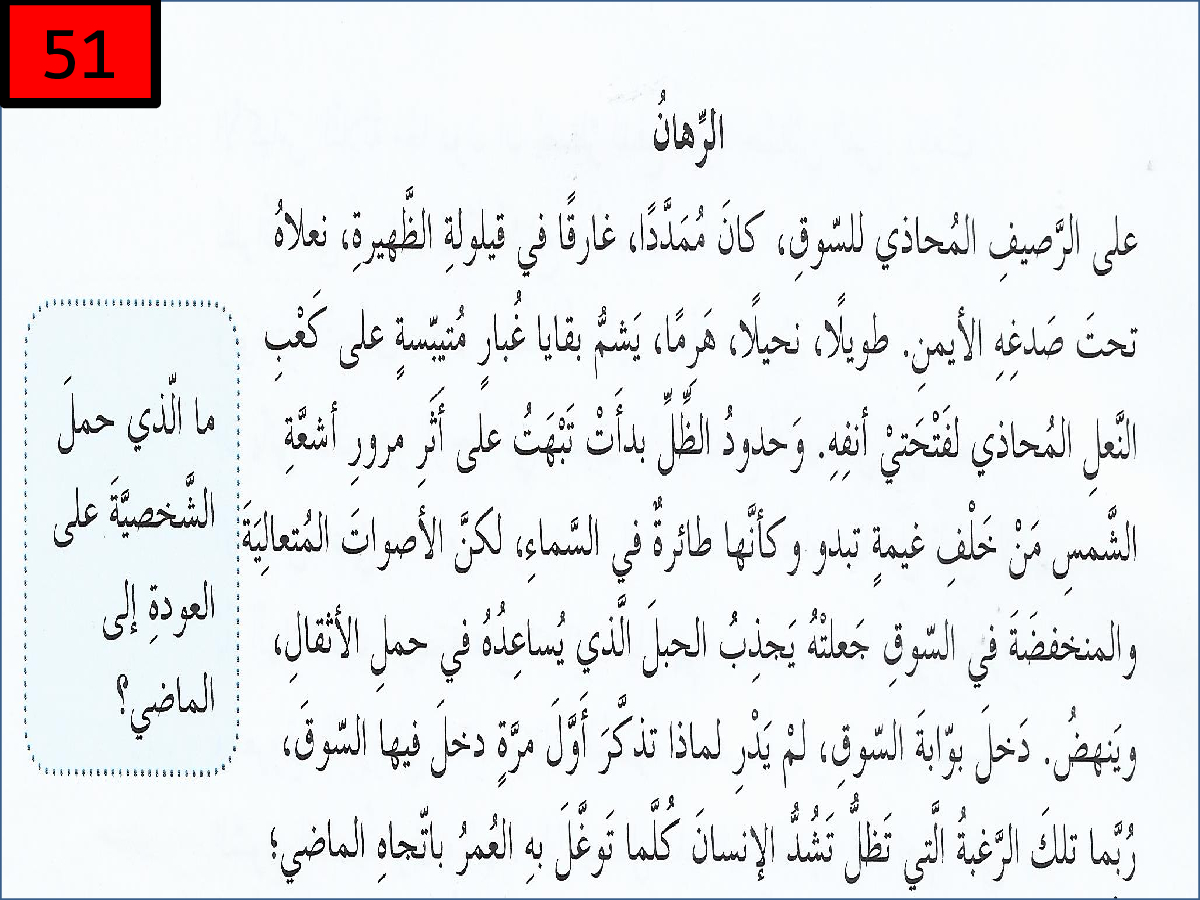 51
الرِّهانُ
على الرَّصيفِ المُحاذي للسّوقِ، كانَ مُمَدَّدًا، غارقًا في قيلولةِ الظَّهيرةِ، نعلاهُ
تحتَ صَدغِهِ الأيمنِ. طويلًا، نحيلًا، هَرِمًا، يَشمُّ بقايا غُبارٍ مُتيبّسةٍ على كَعْبِ
النَّعلِ المُحاذي لفَتْحَتيْ أنفِهِ. وَحدودُ الظِّلِّ بدأَتْ تَبْهَتُ على أَثَرِ مرورِ أشعَّةِ
الشَّمسِ مَنْ خَلْفِ غيمةٍ تبدو وكأنَّها طائرةٌ في السَّماءِ، لكنَّ الأصواتَ المُتعالِيَةَ
والمنخفضَةَ في السّوقِ جَعلتْهُ يَجذِبُ الحبلَ الَّذي يُساعِدُهُ في حملِ الأثقالِ،
ويَنهضُ. دَخلَ بوّابةَ السّوقِ، لمْ يَدْرِ لماذا تذكَّرَ أَوَّلَ مرَّةٍ دخلَ فيها السّوقَ،
رُبَّما تلكَ الرَّغبةُ الَّتي تَظلُّ تَشُدُّ الإنسانَ كُلَّما تَوغَّلَ بهِ العُمرُ باتّجاهِ الماضي؛
ما الّذي حملَ
الشَّخصيَّةَ على
العودةِ إلى
الماضي؟